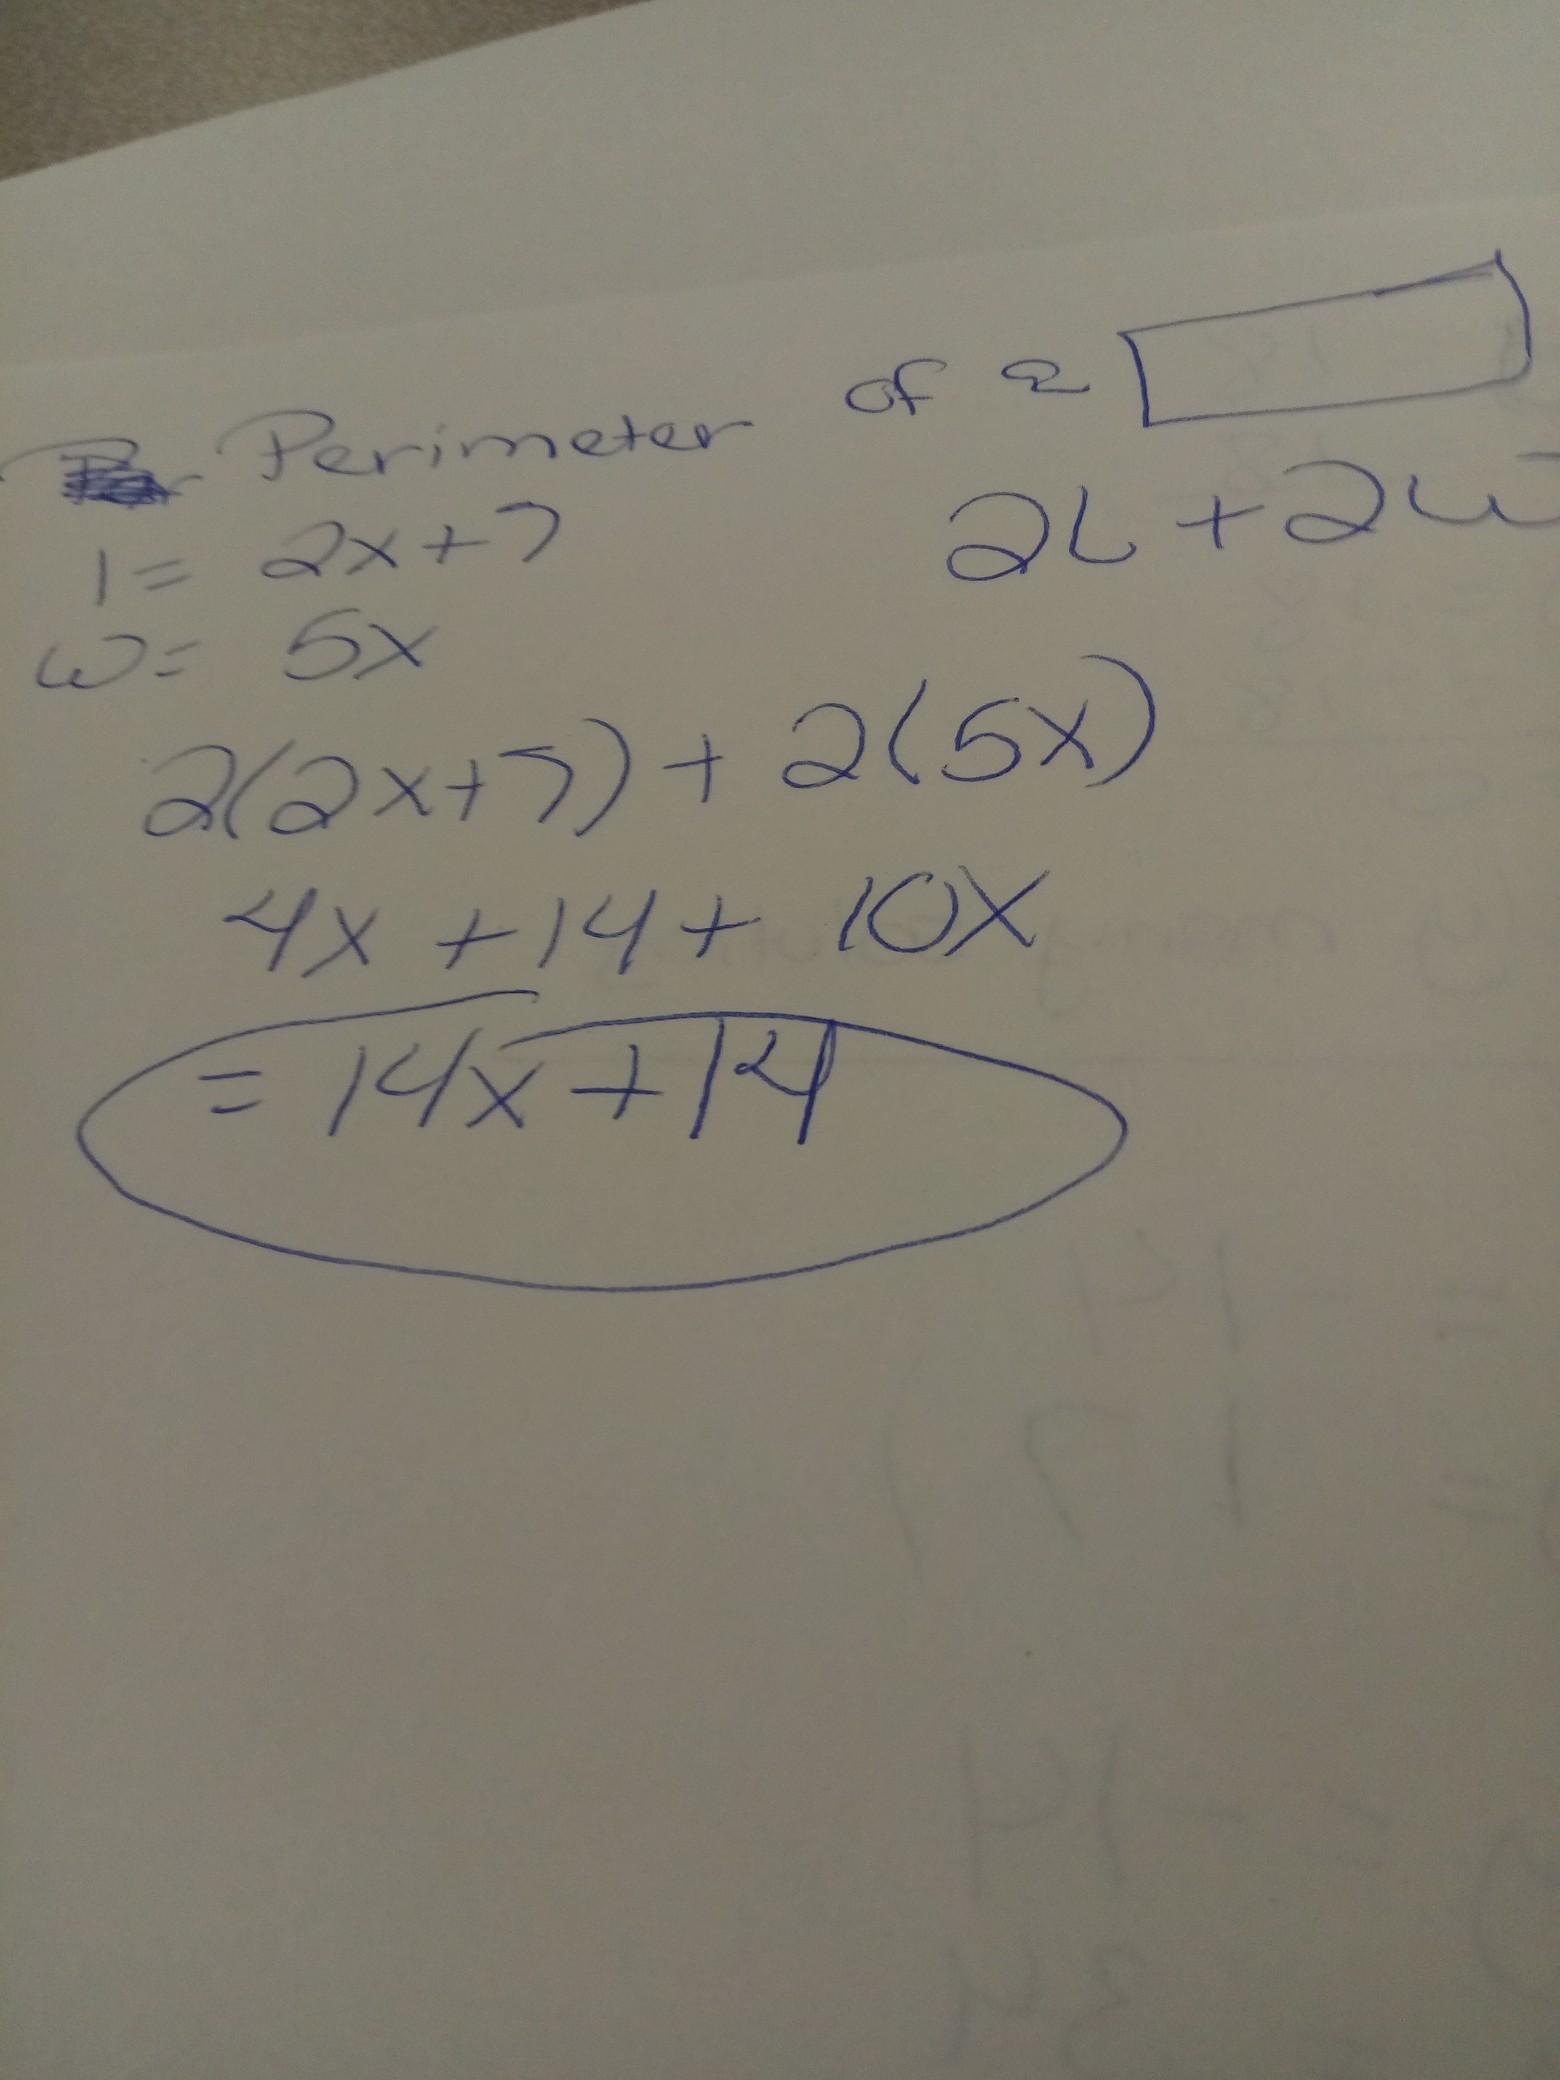 Perimeter of a
l = 2x+7
2L + 2w
w = 5x
2(2x+7) + 2(5x)
4x + 14 + 10x
= 14x + 14